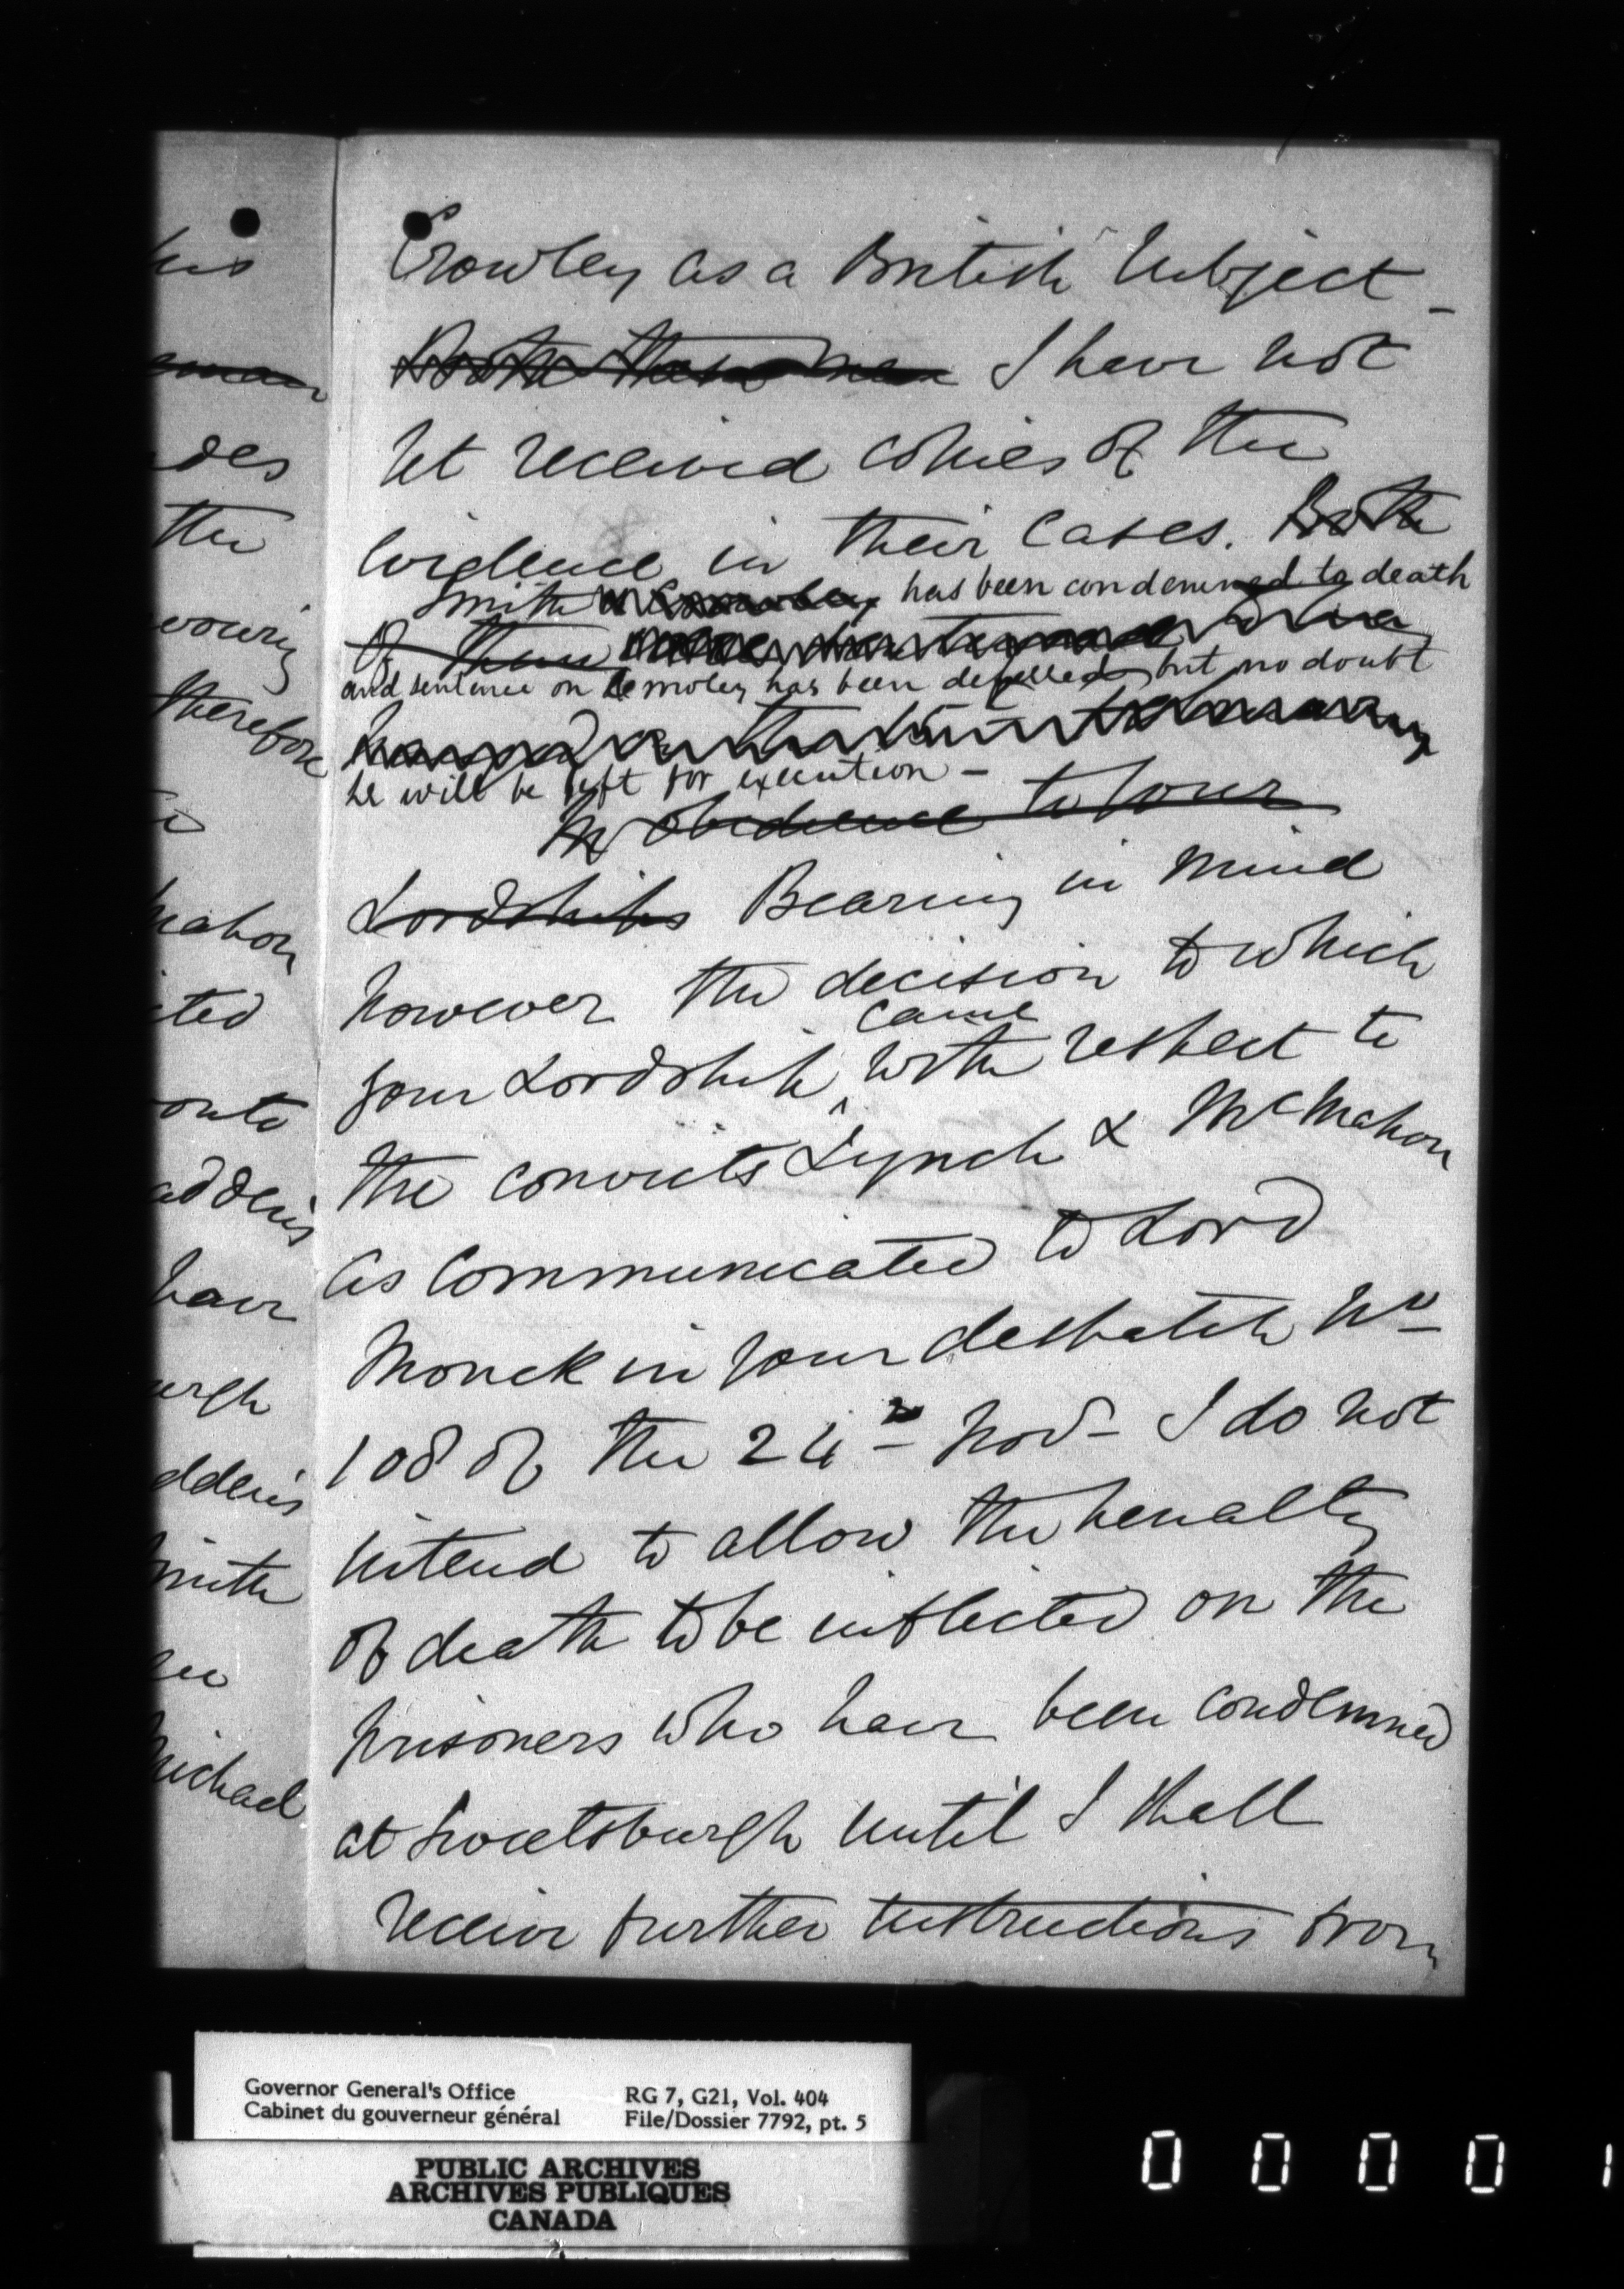 his
des
the
vouring
therefore
mahon
cted
onto
addens
have
urgh
ddens
mith
Michael
Crowley as a British Subject -
Both these men I have not
yet received copies of the
evidence in their cases. Both
Smith has been condemned to death
of them
and sentence on has been deferred but no doubt
he will be left for execution -
In obedience to your
Lordships Bearing in mind
however the decision to which
came
your Lordship with respect to
the convicts Lynch & McMahon
as communicated to Lord
Monck in your despatch No
108 of the 24th Nov - I do not
intend to allow the penalty
of death to be inflicted on the
prisoners who have been condemned
at Sweetsburgh until I shall
receive further instructions from
Governor General's Office
Cabinet du gouverneur général
RG 7, G21, Vol. 404
File/Dossier 7792, pt. 5
PUBLIC ARCHIVES
ARCHIVES PUBLIQUES
CANADA
0 0 0 0 1